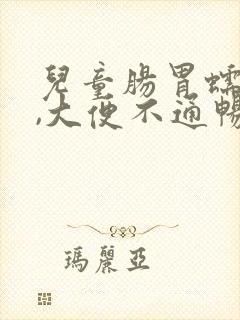 兒童腸胃蠕
,大便不通暢
瑪麗亞